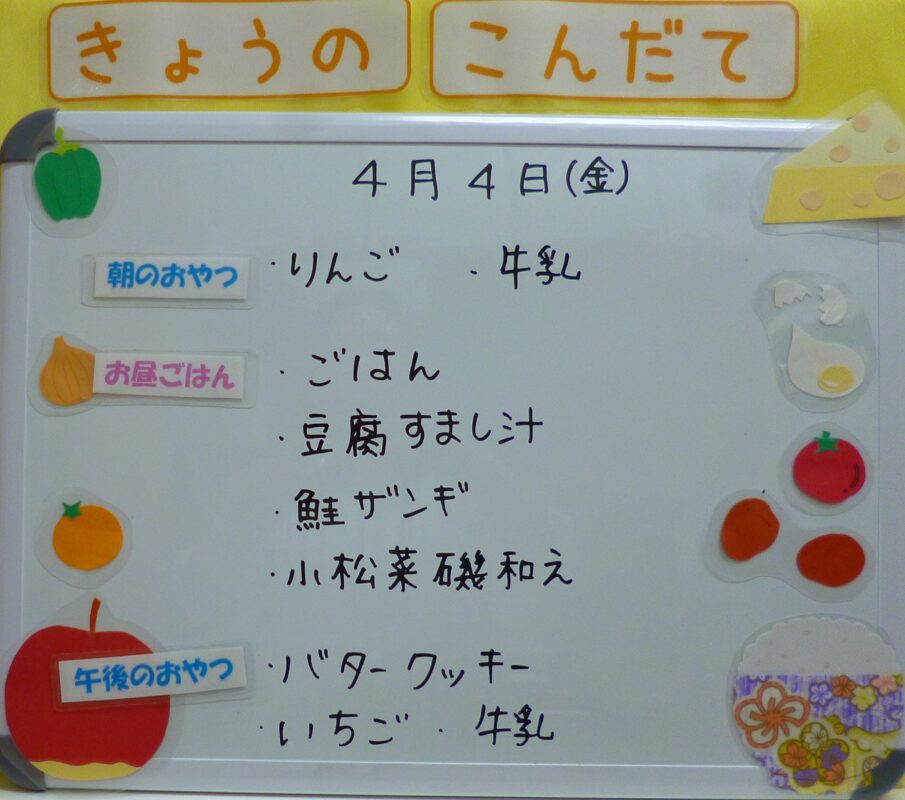 きょうの こんだて
4月4日(金)
朝のおやつ ・りんご ・牛乳
お昼ごはん ・ごはん
・豆腐すまし汁
・鮭ザンギ
・小松菜磯和え
午後のおやつ ・バタークッキー
・いちご ・牛乳